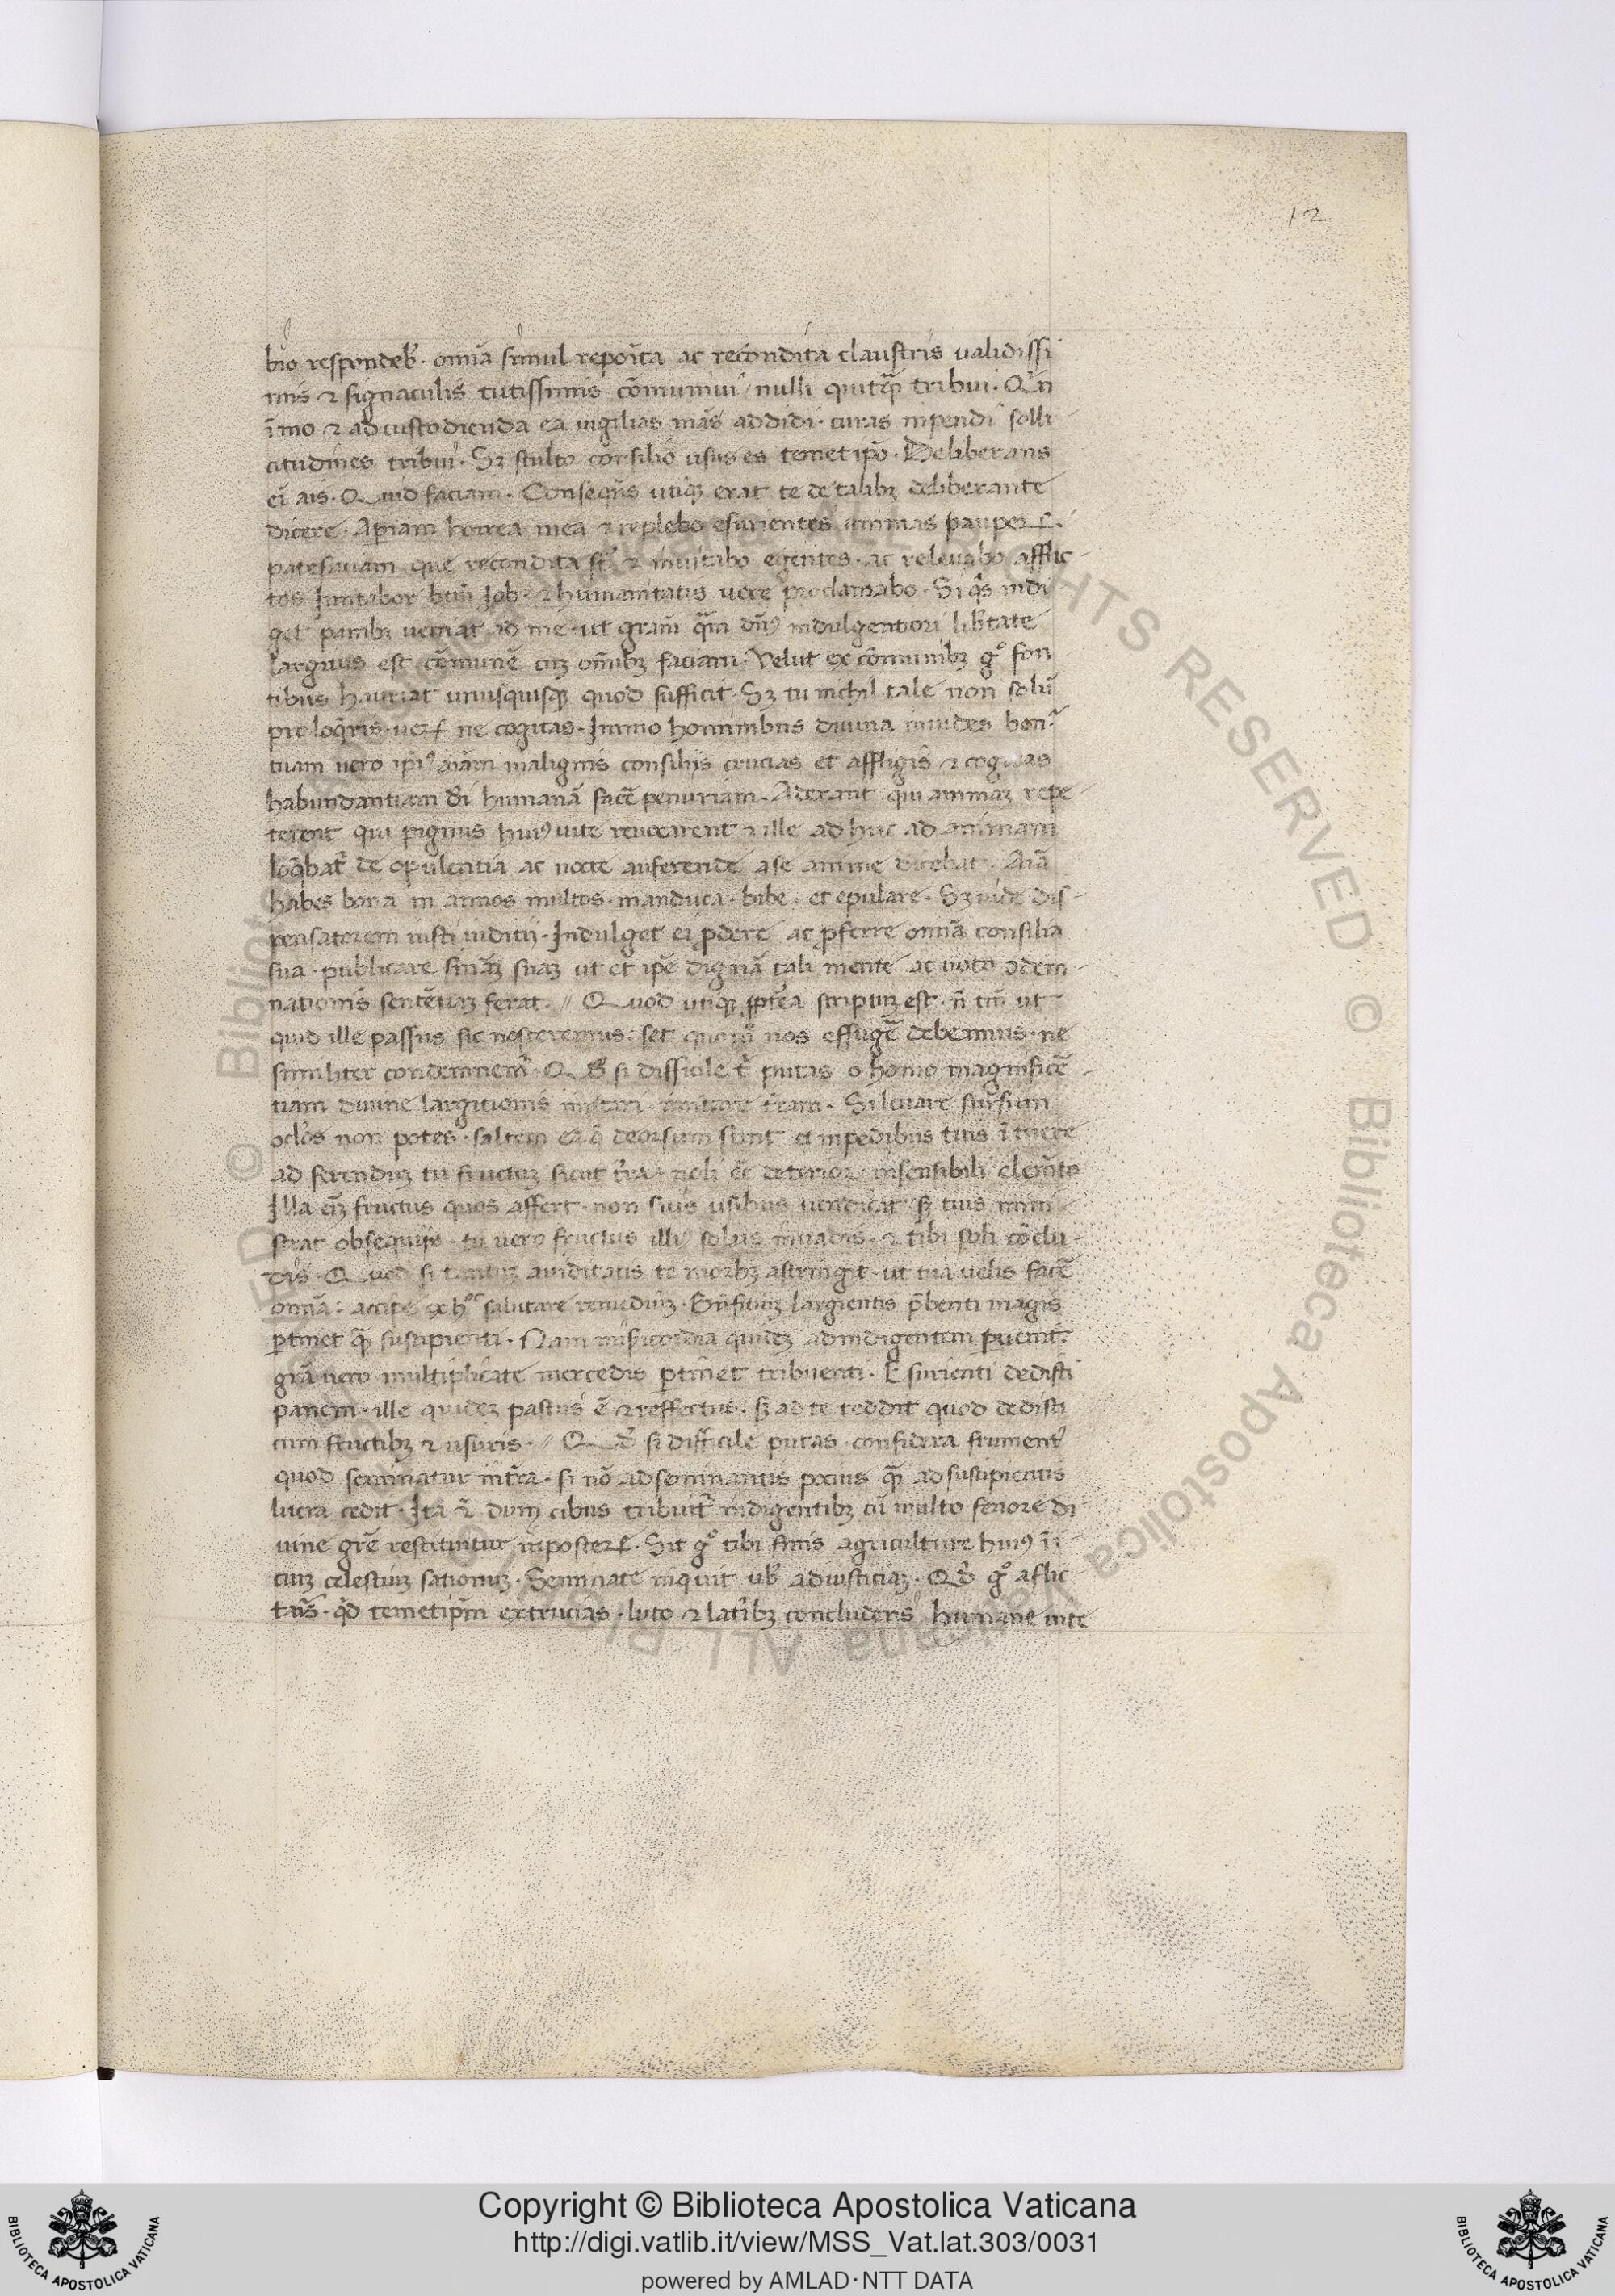 12
bio respondeb̃. omĩa simul repoĩta ac recondita claustris validissi
mis ⁊ signaculis tutissimis cõmuniui / nulli quitq̃ tribui. Qin
ĩmo ⁊ ad custodienda ea uigilias mãs addidi. curas inpendi solli
citudines tribui. Sꝫ stulto consilio usus es temetip̃o. Deliberans
eĩ ais. Quid faciam. Conseq̃ns utiqꝫ erat te de talibꝫ deliberante
dicere. Apiam horrea mea ⁊ replebo esurientes animas pauperꝝ.
patefaciam que recondita st̃ ⁊ inuitabo egentes. ac releuabo afflic
tos Imitabor btm̃ Job. ⁊ humanitatis uoce proclamabo. Si q̃s indi
get panibꝫ ueniat ad me. ut gram̃ quã dñs indulgentiori lib̃tate
largitus est cõmunẽ cuꝫ om̃ibꝫ faciam. Velut ex cõmunibꝫ gͦ fon
tibus hauriat unusquisqꝫ quod sufficit. Sꝫ tu nichil tale non solũ
proloq̃ris. ueꝝ ne cogitas. Immo hominibus diuina inuides bona.
tuam uero ip̃iꝰ aĩam malignis consiliis crucias et affligis ⁊ cogitas
habundantiam dĩ humanã facẽ penuriam. Aderant qui animaꝫ repe
terent qui pignus huiꝰ uite reuocarent ⁊ ille ad huc ad animam
loq̃bat̃ de opulentia ac nocte auferende a se anime dicebat. Aĩa
habes bona in annos multos. manduca. bibe. et epulare. Sꝫ uide dis
pensatorem iusti iuditii. Indulget ei ꝓdere ac ꝓferre omĩa consilia
sua. publicare sn̄iaꝫ suaꝫ ut et ip̃e dignã tali mente ac uoto ↄdem
nationis sentẽtiaꝫ ferat. // Quod utiqꝫ ꝓpt̃ea scriptuꝫ est. ñ tm̃ ut
quid ille passus sic nosceremus: set quom̃ nos effugẽ debeamus. ne
similiter condemnem̃. Qd̃ si difficile t̃ putas o homo magnificẽ
tiam diuine largitionis imitari. imitare t̃ram. Si leuare sursum
oclõs non potes. saltem ea q̃ deorsum sunt et in pedibus tuis ĩtuere
ad ferenduꝫ tu fructuꝫ sicut t̃ra. noli eẽ deterior insensibili elem̃to
Illa em̃ fructus quos affert. non suis usibus uendicat sꝫ tuis mini
strat obsequiis. tu uero fructus illiꝰ solus inuadis. ⁊ tibi soli cõclu
dis. Quod si tantuꝫ auiditatis te morbꝫ astringit. ut tua uelis facẽ
omĩa. accipe ex hͦc salutare remediuꝫ. Bñficiuꝫ largientis p̃benti magis
ꝑtinet q̃ suscipienti. Nam mis̃icordia quideꝫ ad indigentem ꝑuenit.
grã uero multiplicate mercedis ꝑtinet tribuenti. Esurienti dedisti
panem. ille quideꝫ pastus ẽ ⁊ reffectus. sꝫ ad te reddit quod dedisti
cum fructibꝫ ⁊ usuris. // Qd̃ si difficile putas. considera frument̃
quod seminatur in t̃ra. si nõ ad seminantis pocius q̃ ad suscipientis
lucra cedit. Ita ⁊ dum cibus tribuit̃ indigentibꝫ cũ multo fenore di
uine grẽ restituitur in posterꝝ. Sit gͦ tibi finis agriculture huiꝰ ĩi
ciuꝫ celestiuꝫ sationuꝫ. Seminate inquit ub̃ ad iusticiaꝫ. Qd̃ gͦ aflic
taris. q̃d temetip̃m excrucias. luto ⁊ latib̃ꝫ concludens humane uite
Copyright © Biblioteca Apostolica Vaticana
http://digi.vatlib.it/view/MSS_Vat.lat.303/0031
powered by AMLAD·NTT DATA